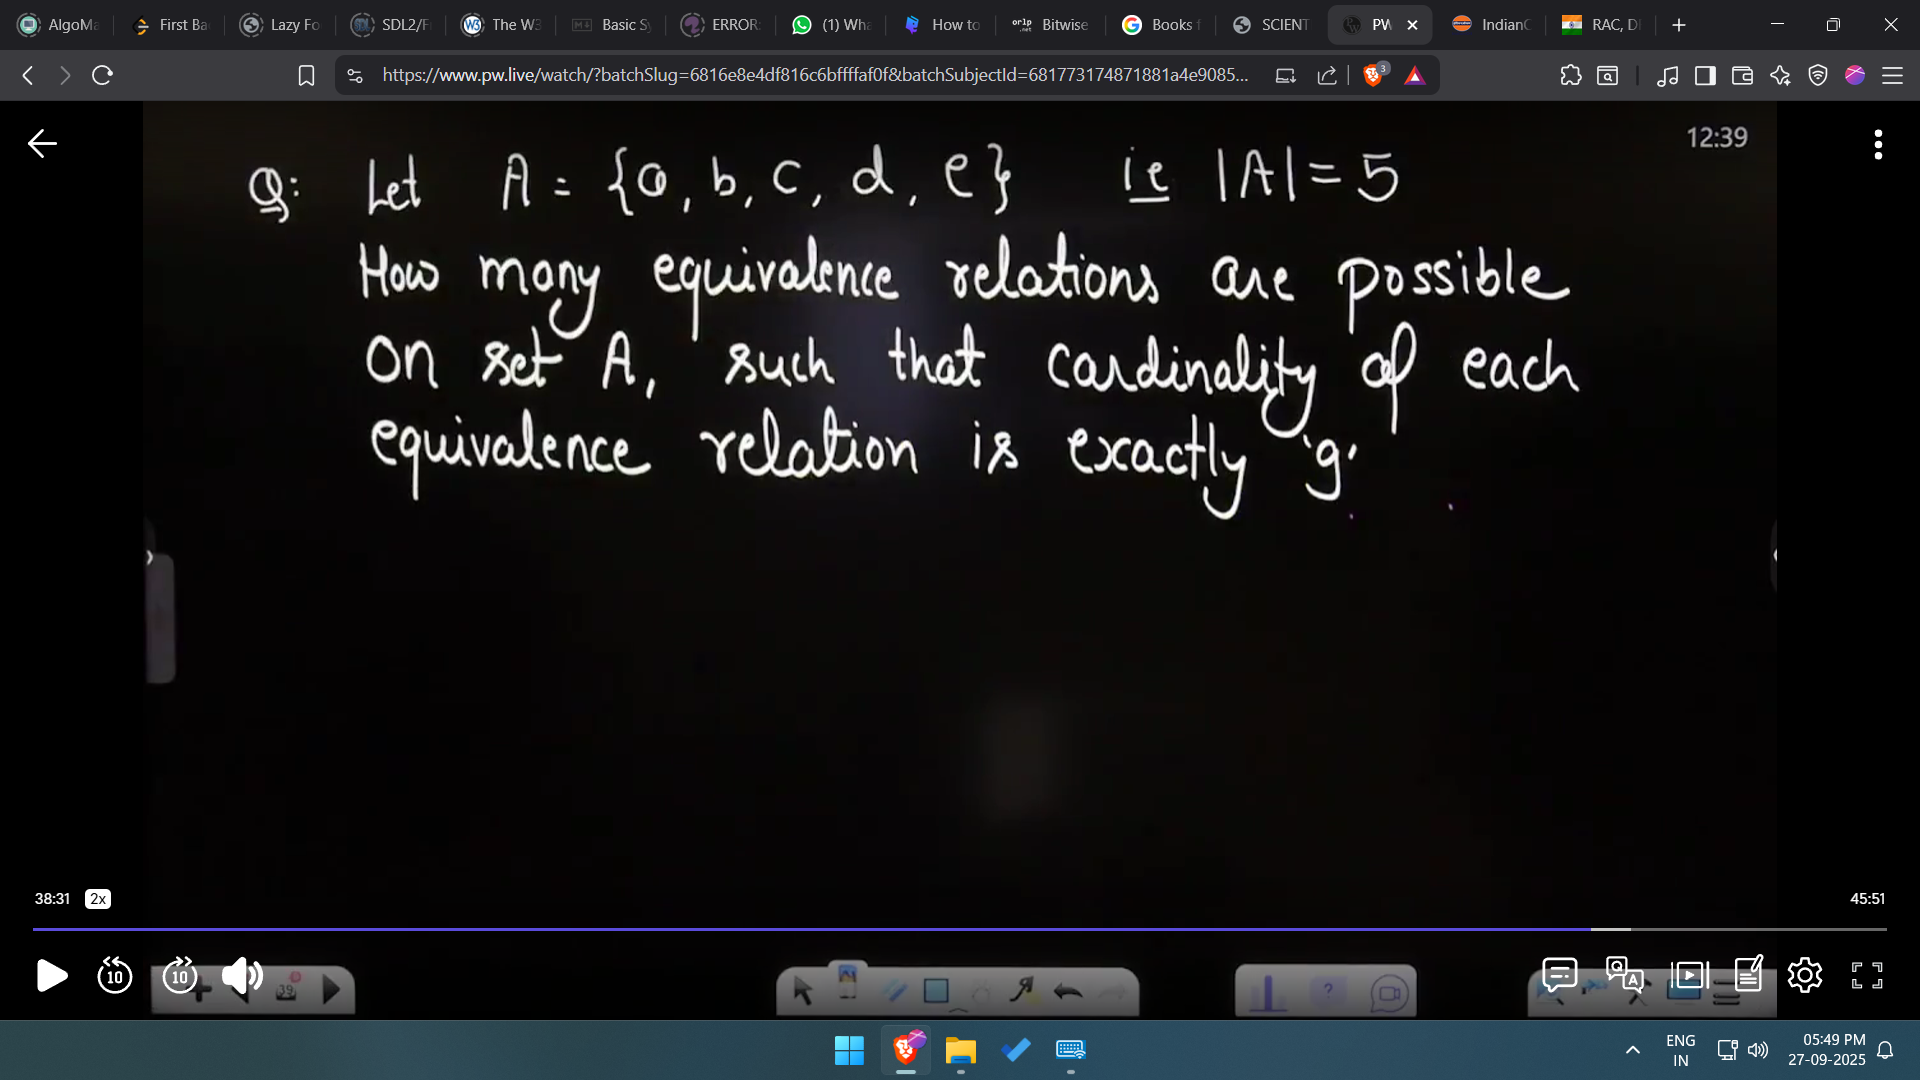 AlgoMa
First Ba
Lazy Fo
SDL2/Fr
The W3
Basic Sy
ERROR:
(1) Wha
How to
Bitwise
Books f
SCIENT
PW
IndianO
RAC, D
https://www.pw.live/watch/?batchSlug=6816e8e4df816c6bffffaf0f&batchSubjectId=681773174871881a4e9085...
3
12:39
Q: Let A = {a, b, c, d, e} ie |A| = 5
How many equivalence relations are possible
on set A, such that cardinality of each
equivalence relation is exactly '9'
38:31 2x
45:51
10
10
39
ENG
IN
05:49 PM
27-09-2025